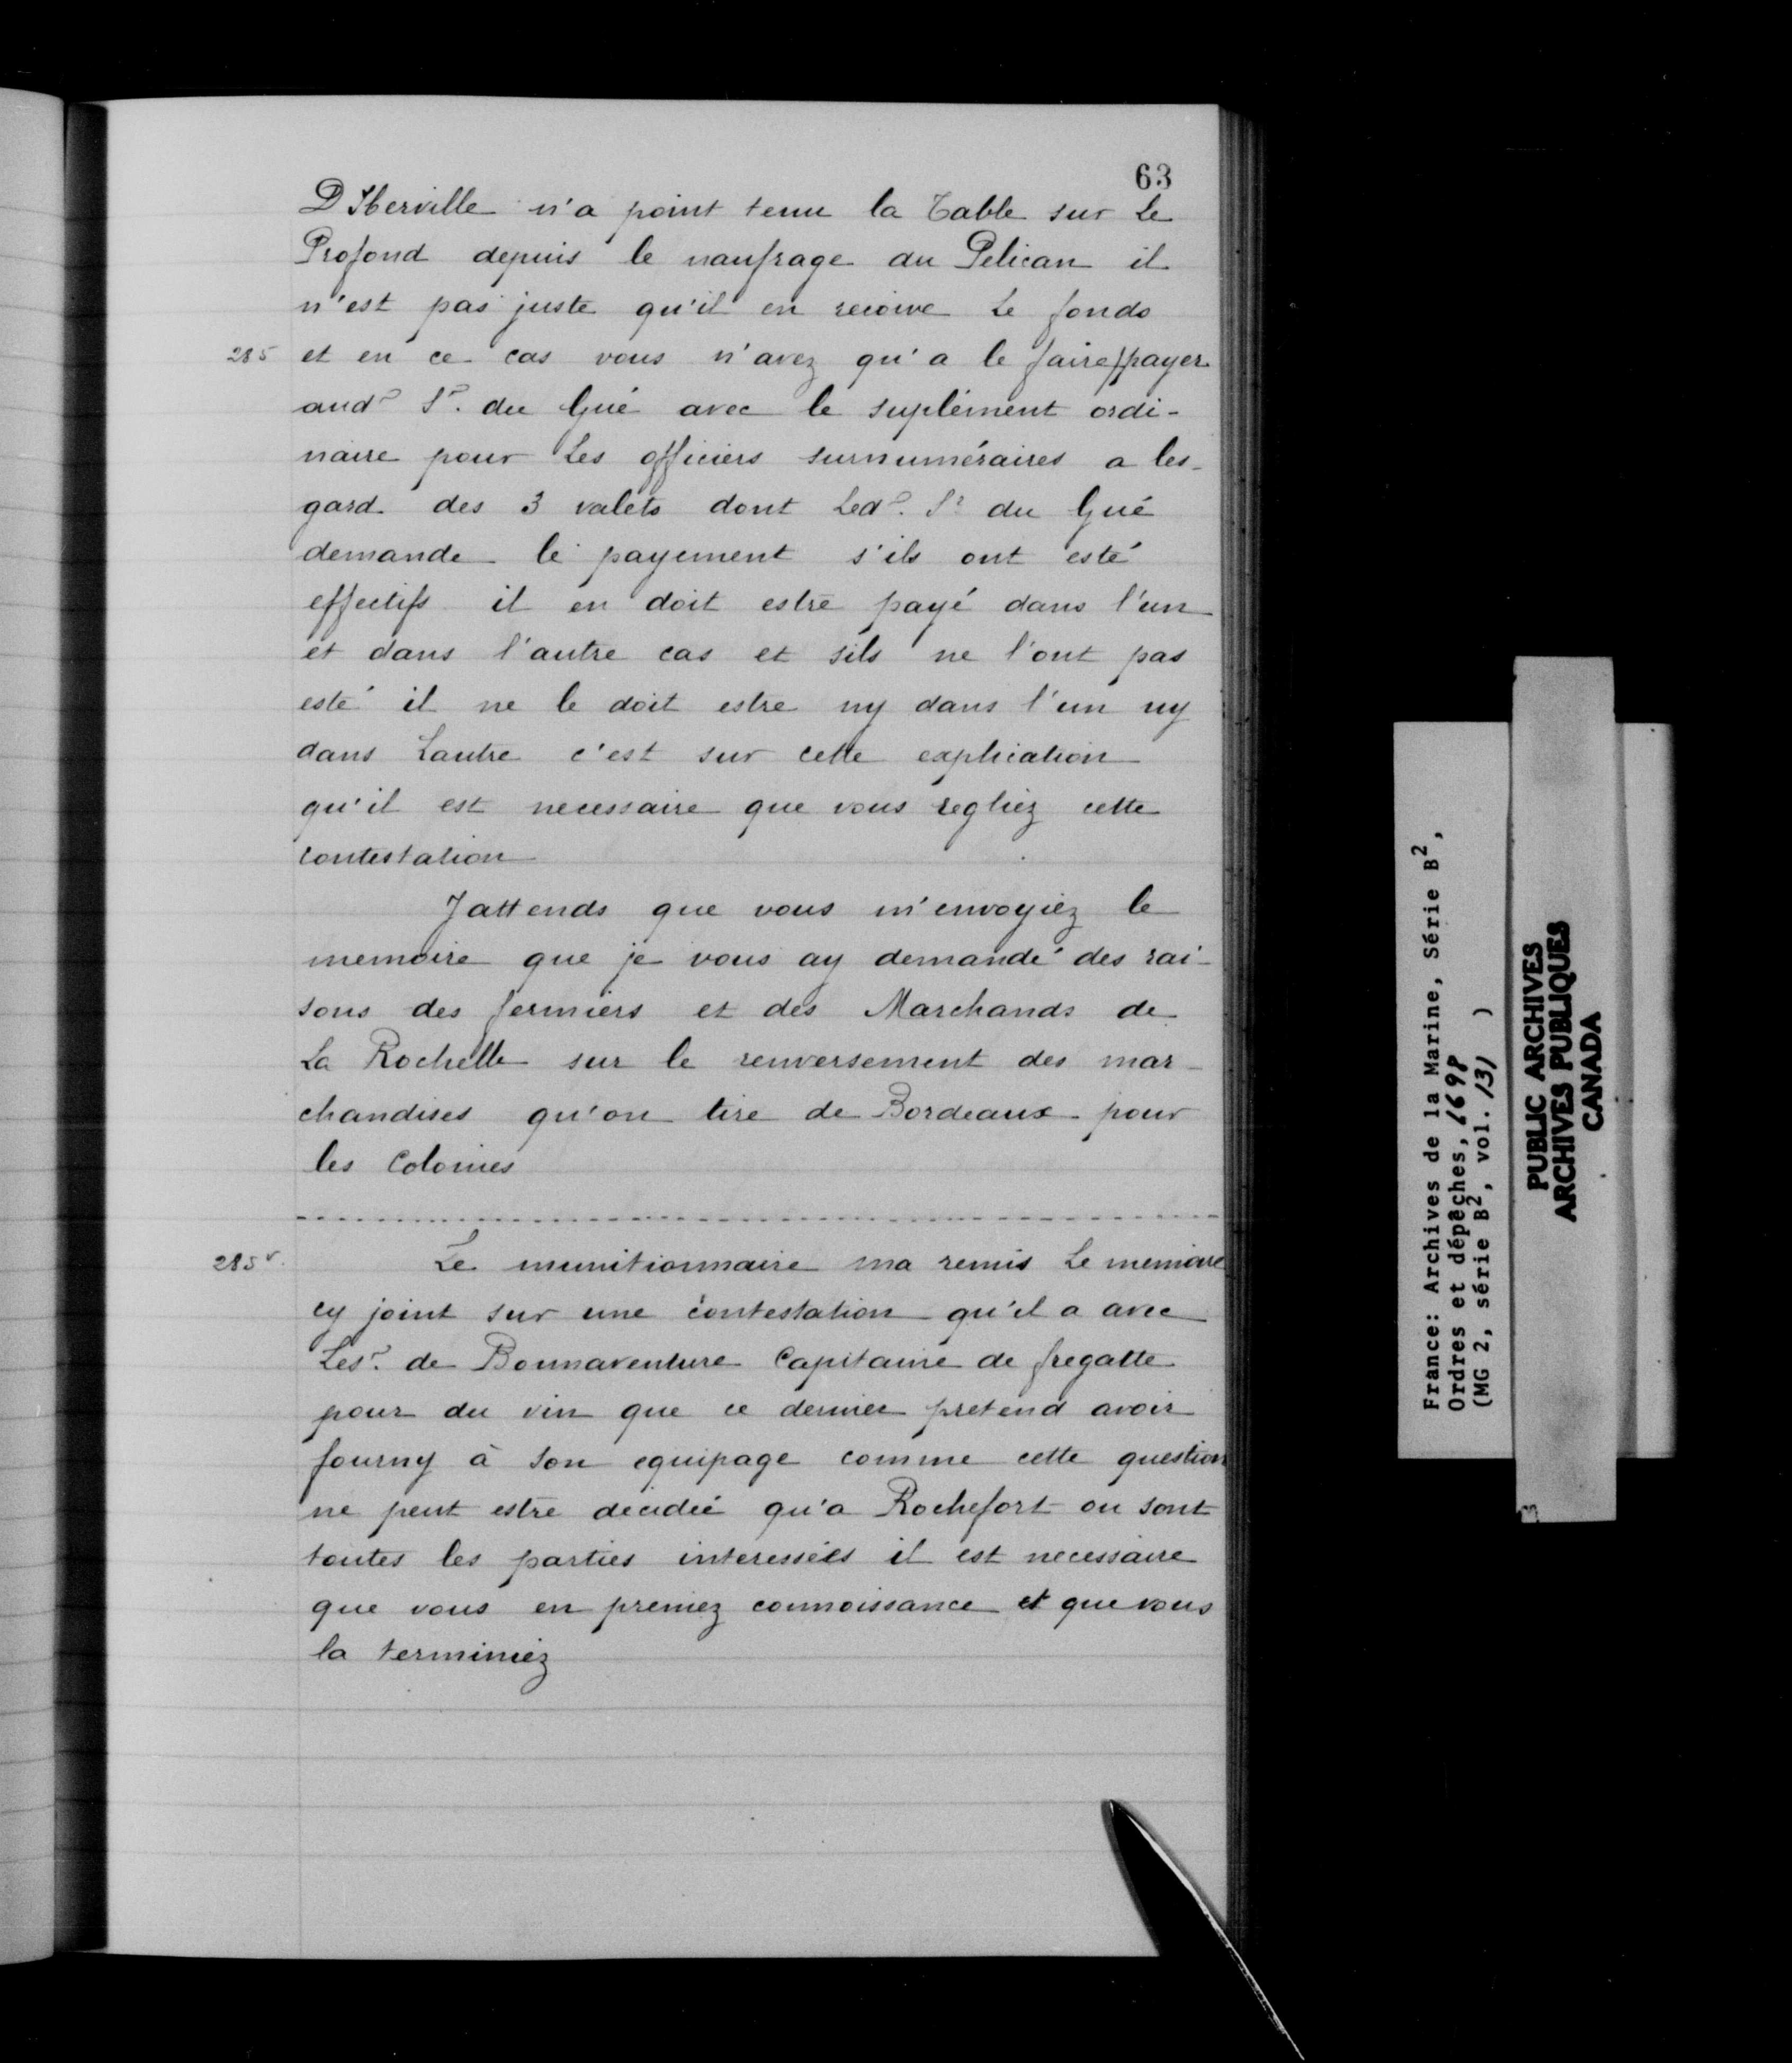 63
D Iberville n'a point tenu la Table sur Le
Profond depuis le naufrage du Pelican il
n'est pas juste qu'il en recoive Le fonds
285 et en ce cas vous n'avez qu'a le faire//payer
aud? Sr. du Gué avec le suplément ordi-
naire pour Les officiers surnuméraires a les-
gard des 3 valets dont Led?. Sr du Gué
demande le payement s'ils ont esté
effectifs il en doit estre payé dans l'un
et dans l'autre cas et sils ne l'ont pas
esté il ne le doit estre ny dans l'un ny
dans Lautre c'est sur cette explication
qu'il est necessaire que vous regliez cette
contestation
Jattends que vous m'envoyiez le
memoire que je vous ay demandé des rai-
sons des fermiers et des Marchands de
La Rochelle sur le renversement des mar-
chandises qu'on tire de Bordeaux pour
les Colonies
285v. Le munitionnaire ma remis Le memoire
cy joint sur une contestation qu'il a avec
Les?. de Bonnaventure Capitaine de fregatte
pour du vin que ce dernier pretend avoir
fourny à son equipage comme cette question
ne peut estre decidée qu'a Rochefort ou sont
toutes les parties interessées il est necessaire
que vous en preniez connoissance et que vous
la terminiez
France: Archives de la Marine, Série B2,
Ordres et dépêches, 1698
(MG 2, série B2, vol. 131 )
PUBLIC ARCHIVES
ARCHIVES PUBLIQUES
CANADA